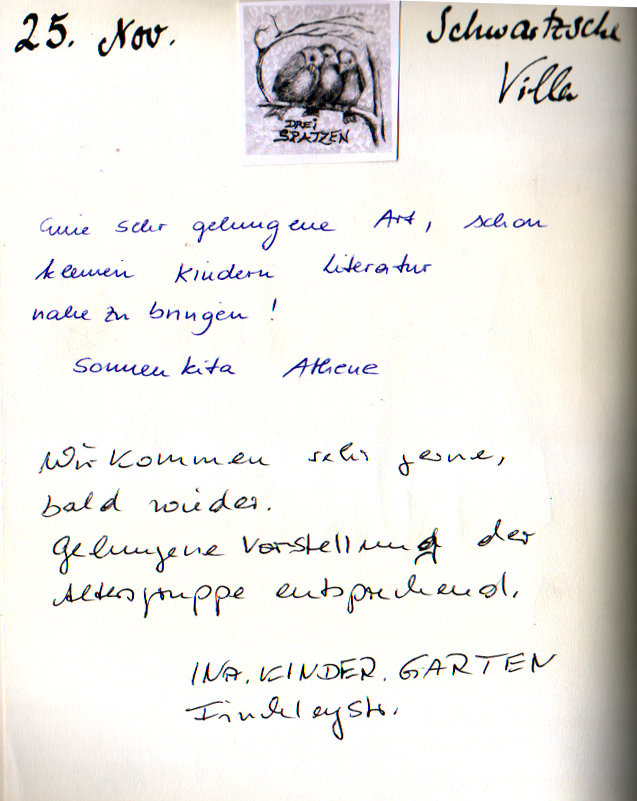 25. Nov.
Schwartzsche
Villa
DREI
SPATZEN
Eine sehr gelungene Art, schon
kleinen Kindern Literatur
nahe zu bringen!
Sonnenkita Athene
Wir kommen sehr gerne,
bald wieder.
Gelungene Vorstellung der
Altersgruppe entsprechend.
INA.KINDER.GARTEN
Finckleystr.